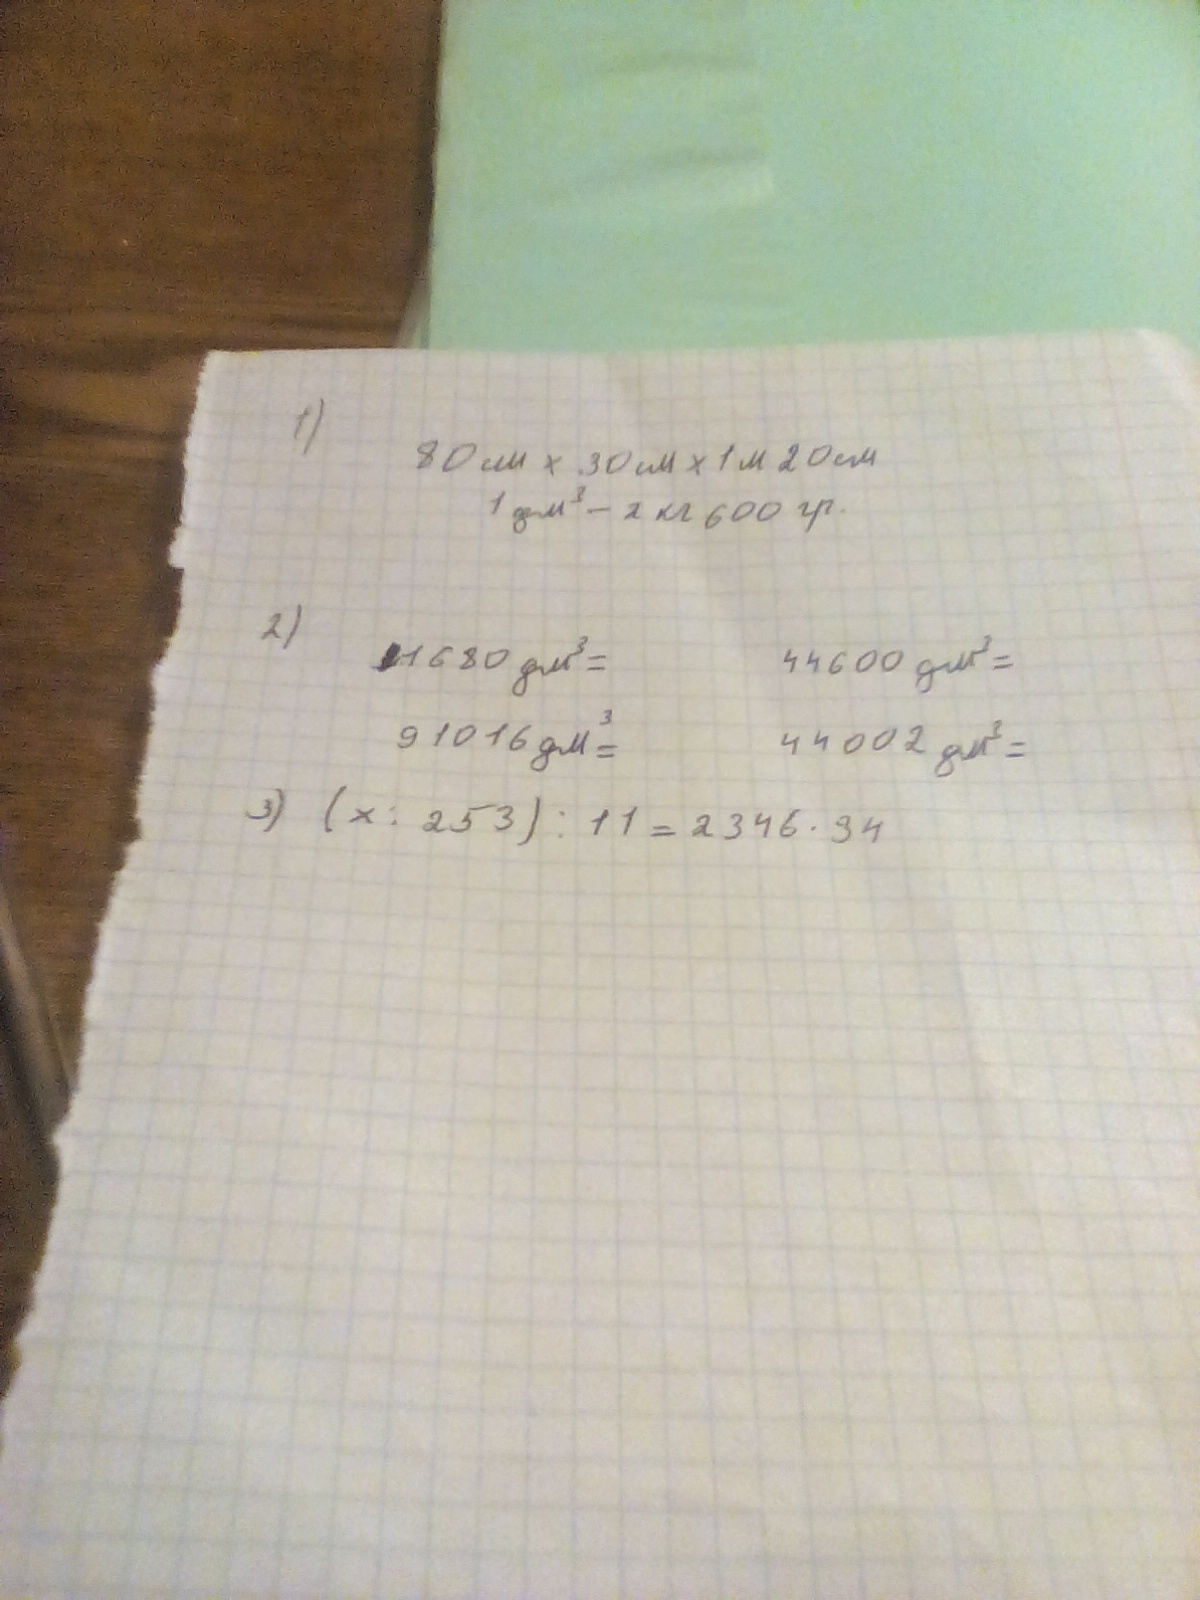 1)
80 см х 30 см х 1 м 20 см
1 дм³ – 2 кг 600 гр.
2)
11680 дм³ = 44600 дм³ =
91016 дм³ = 44002 дм³ =
3) (х : 253) : 11 = 2346 · 94